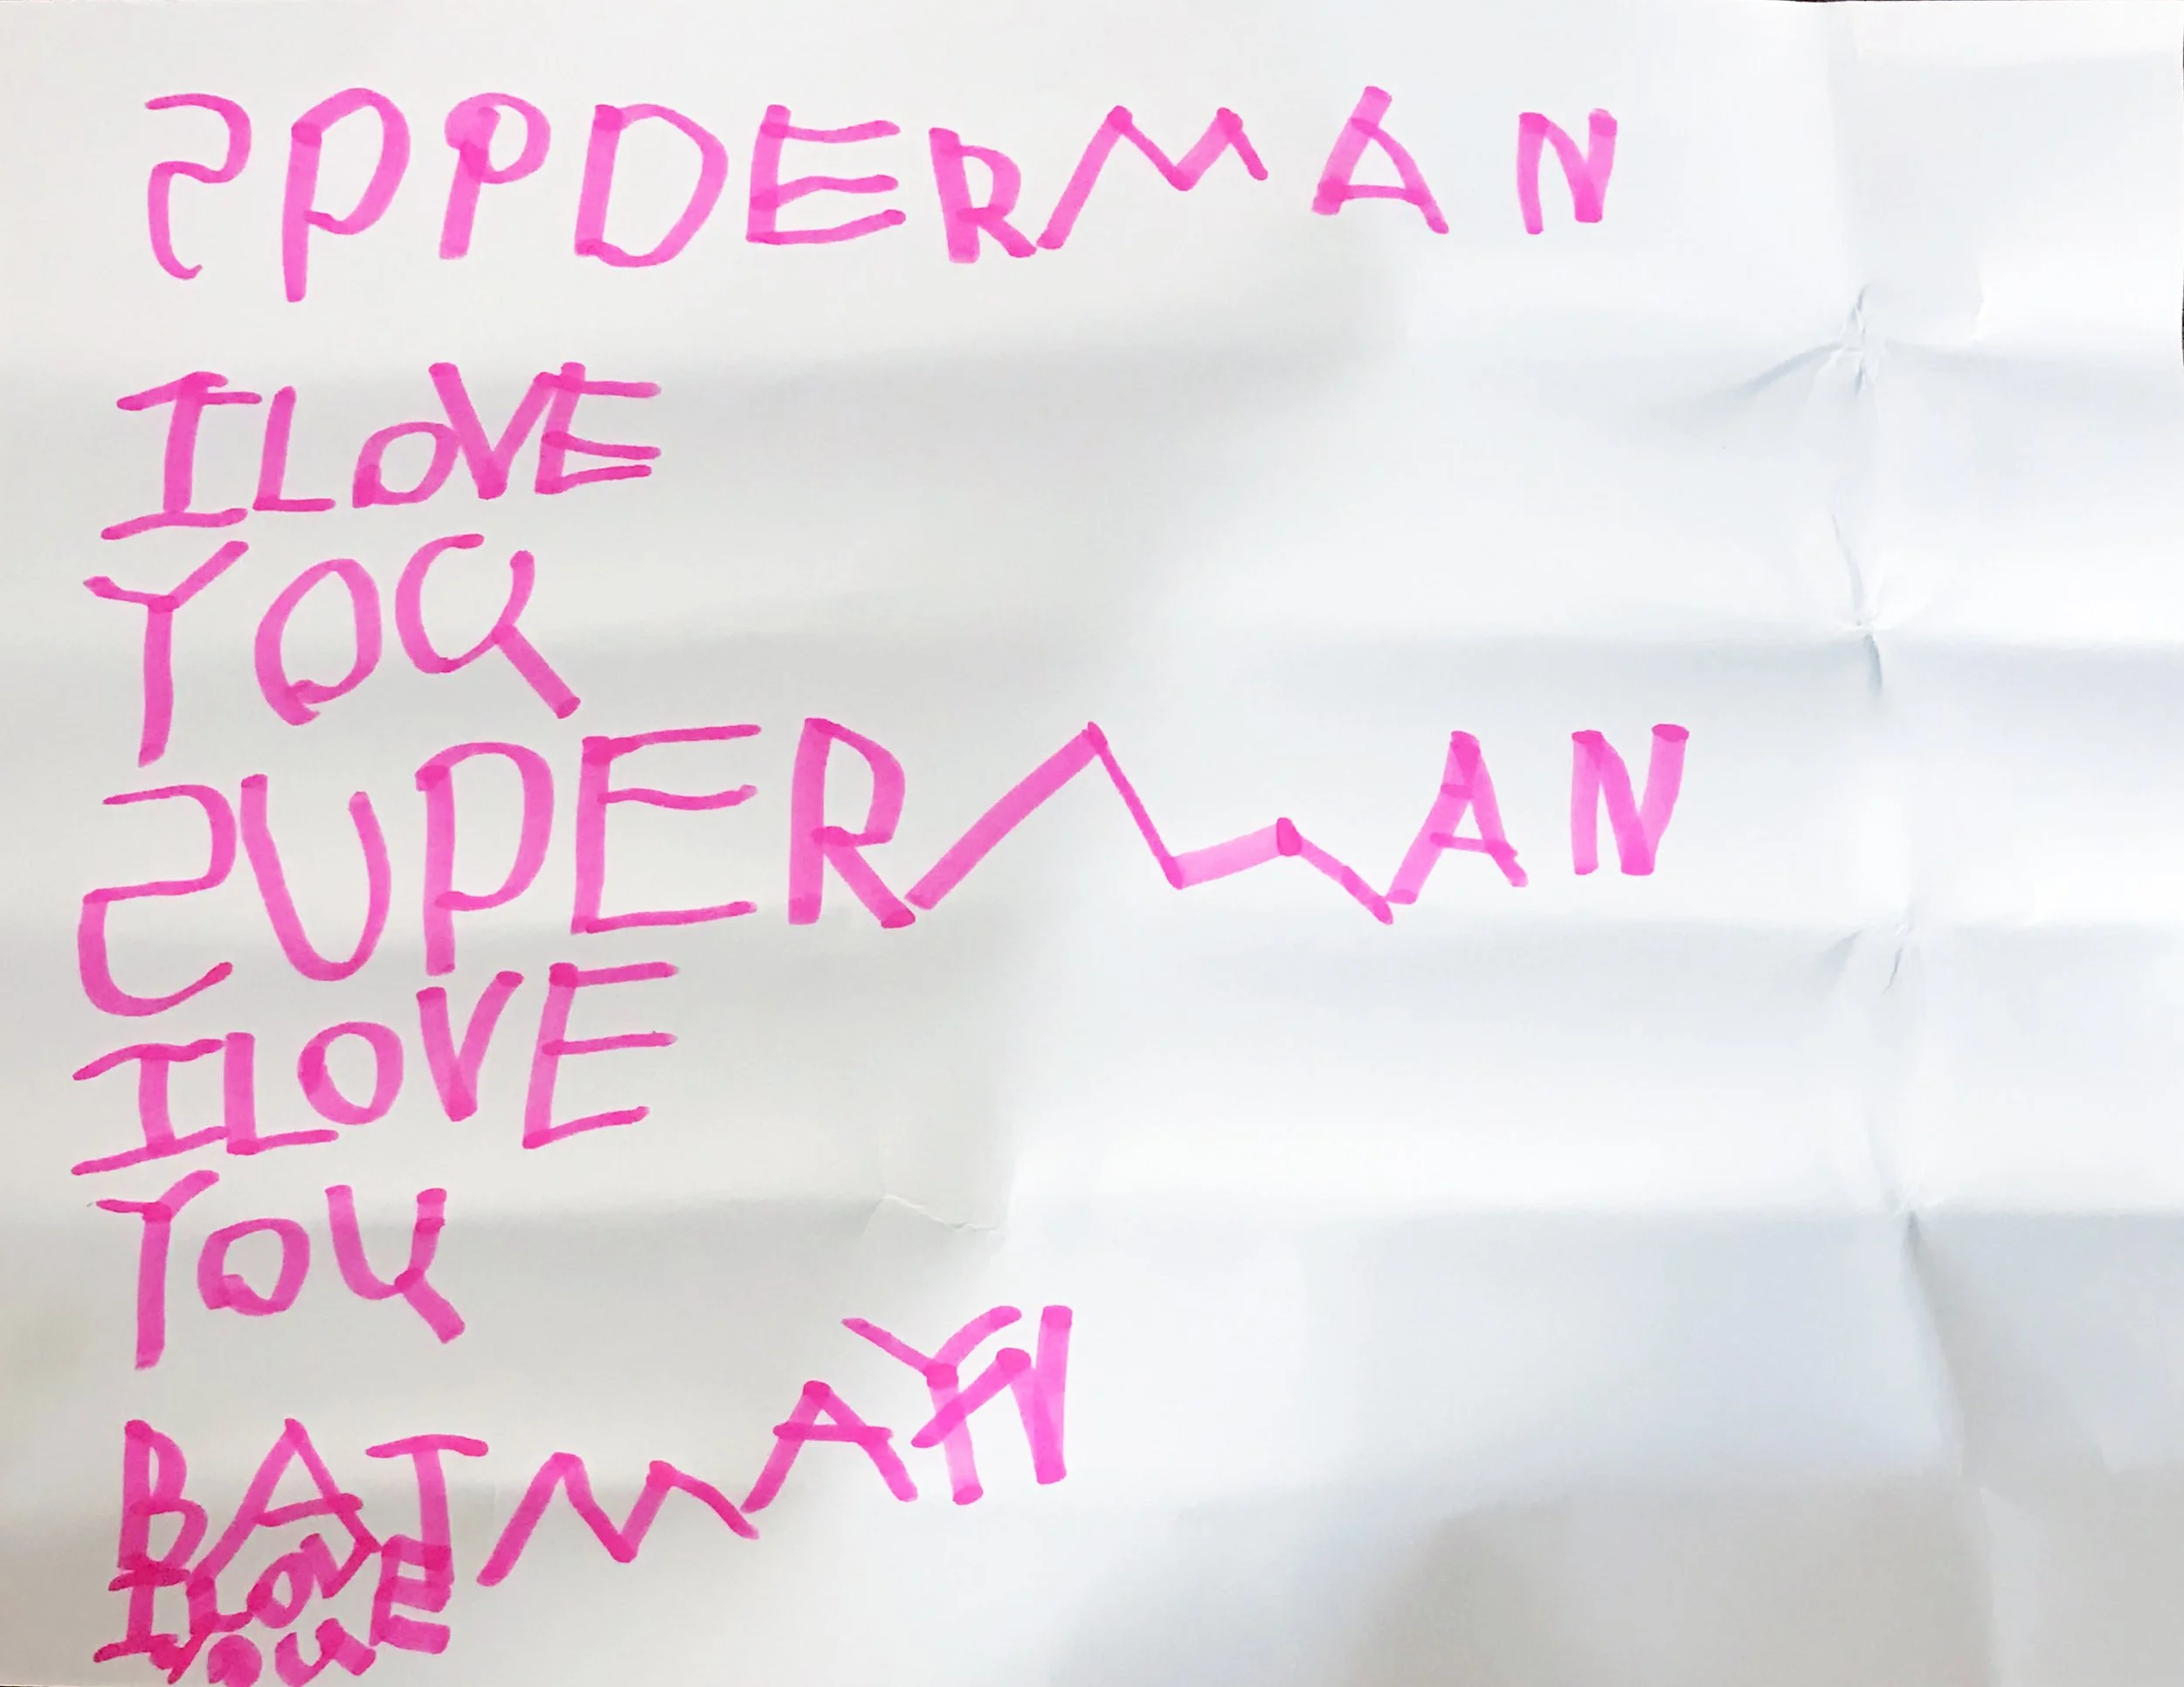 SPPDERMAN
I LOVE
YOU
SUPERMAN
I LOVE
YOU
BATMAN
I LOVE
YOU